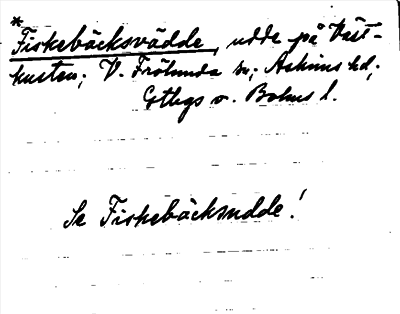 *
Fiskebäcksvädde, udde på Väst-
kusten; V. Frölunda sn; Askims hd;
Gtbgs o. Bohus l.
Se Fiskebäcksudde!